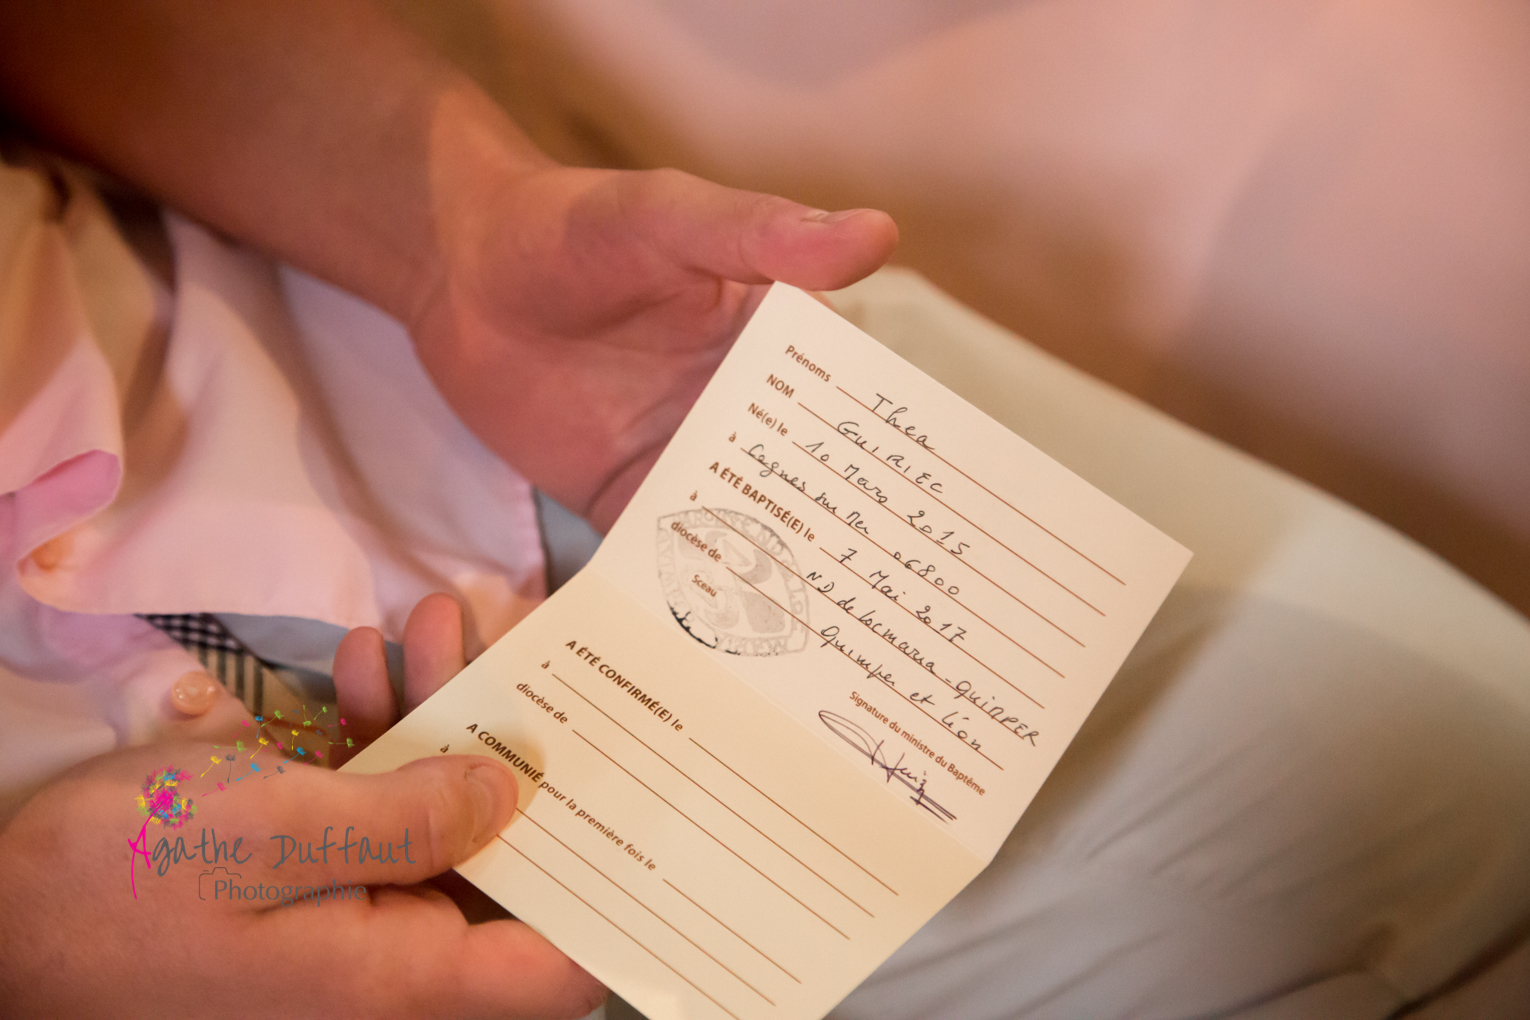 Prénoms Thea
NOM GUIRIEC
Né(e) le 10 Mars 2015
à Cagnes sur Mer 06800
A ÉTÉ BAPTISÉ(E) le 7 Mai 2017
à ND de Locmaria - QUIMPER
diocèse de Quimper et Léon
Sceau
Signature du ministre du Baptême
A ÉTÉ CONFIRMÉ(E) le
à
diocèse de
A COMMUNIÉ pour la première fois le
à
Agathe Duffaut
Photographie